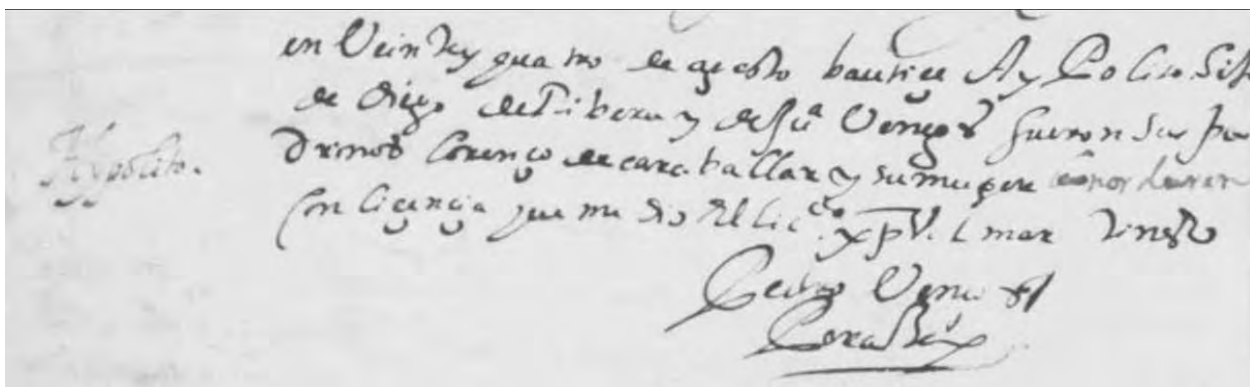 Hypolito.
en Veinte y quatro de agosto bautice A ypolito hijo
de Diego de Ribera y de Ju.ª Venegas fueron sus pa
drinos Lorenço de caraballar y su muger
Con liçençia que me dio el lic.do xpv.l mar tines
Pedro Venegas